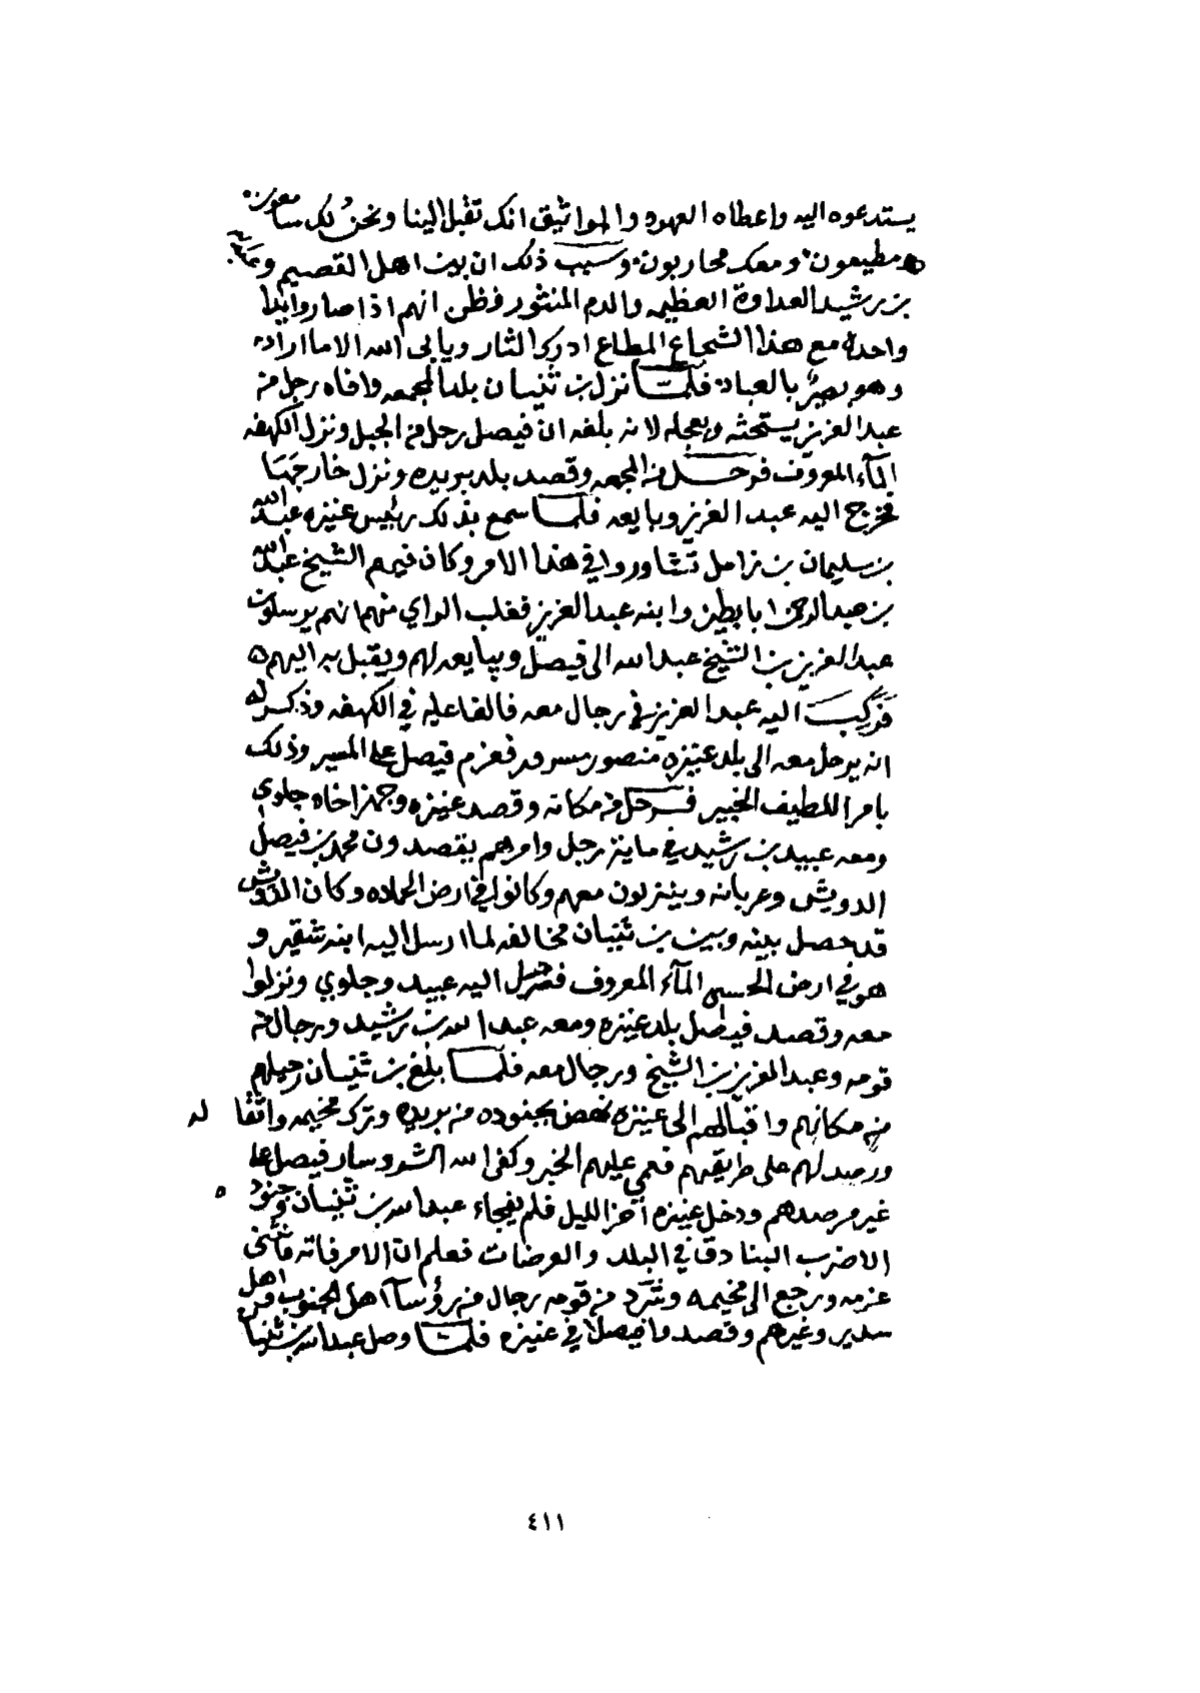 يستدعوه اليه واعطاه العهود والمواثيق انك تقبل الينا ونحن لك سامعون
مطيعون ومعك محاربون وسبب ذلك ان بين اهل القصيم و
بن رشيد العداوة العظيمه والدم المنثور فظن انهم اذا صاروا يدا
واحدة مع هذا الشجاع المطاع ادركوا الثار ويابى الله الا ما اراد
وهو بصير بالعباد فلما نزل بن ثنيان بلد المجمعه وافاه رجل من
عبد العزيز يستحثه ويعجله لانه بلغه ان فيصل رحل من الجبل ونزل الكهفه
المآء المعروف فرحل من المجمعه وقصد بلد بريده ونزل خارجها
فخرج اليه عبد العزيز وبايعه فلما سمع بذلك رئيس عنيزه عبد الله
بن سليمان بن زامل تشاوروا في هذا الامر وكان فيهم الشيخ عبد الله
بن عبد الرحمن ابا بطين وابنه عبد العزيز فغلب الراي منهم انهم يرسلون
عبد العزيز بن الشيخ عبد الله الى فيصل ويبايعه لهم ويقبل به اليهم ه
فركب اليه عبد العزيز في رجال معه فالفا عليه في الكهفه وذكر له
انه يرحل معه الى بلد عنيزه منصور مسرور فعزم فيصل على المسير وذلك
بامر اللطيف الخبير فرحل من مكانه وقصد عنيزه وجهز اخاه جلوي
ومعه عبيد بن رشيد في ماية رجل وامرهم يقصدون محمد بن فيصل
الدويش وعربانه وينزلون معهم وكانوا في ارض الحماده وكان الدويش
قد حصل بينه وبين بن ثنيان مخالفه لما ارسل اليه ابنه شقير و
هو في ارض الحسي المآء المعروف فرحل اليه عبيد وجلوي ونزلوا
معه وقصد فيصل بلد عنيزه ومعه عبد الله بن رشيد ورجال من
قومه وعبد العزيز بن الشيخ ورجال معه فلما بلغ بن ثنيان رحيلهم
من مكانهم واقبالهم الى عنيزه نهض بجنوده من بريده وترك مخيمه واقفا له
ورصد لهم على طريقهم فعمي عليهم الخبر وكفى الله الشر وسار فيصل على
غير مرصدهم ودخل عنيزه آخر الليل فلم يفجاء عبد الله بن ثنيان وجنوده
الا ضرب البنادق في البلد والعرضات فعلم ان الامر فاته فانثنى
عزمه ورجع الى مخيمه وشرد من قومه رجال من رؤسآ اهل الجنوب ومن اهل
سدير وغيرهم وقصدوا فيصلا في عنيزه فلما وصل عبد الله بن ثنيا
٤١١